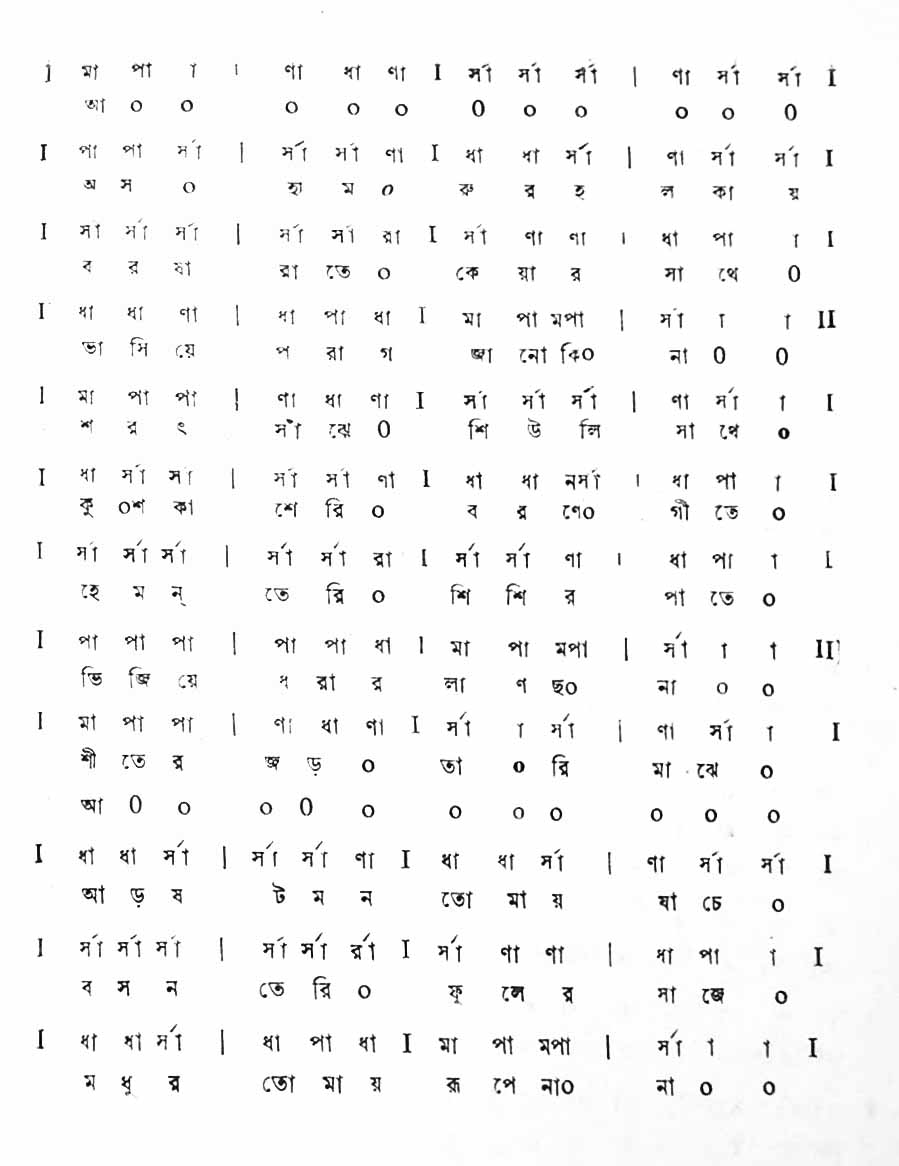 I মা পা া | ণা ধা ণা I র্সা র্সা র্সা | ণা র্সা র্সা I
আ ০ ০ ০ ০ ০ ০ ০ ০ ০ ০ ০
I পা পা র্সা | র্সা র্সা ণা I ধা ধা র্সা | ণা র্সা র্সা I
অ স ০ হা ম ০ রু র হ ল কা য়
I র্সা র্সা র্সা | র্সা র্সা রা I র্সা ণা ণা | ধা পা া I
ব র ষা রা তে ০ কে য়া র সা থে ০
I ধা ধা ণা | ধা পা ধা I মা পা মপা | র্সা া া II
ভা সি য়ে প রা গ জা নো কি০ না ০ ০
I মা পা পা | ণা ধা ণা I র্সা র্সা র্সা | ণা র্সা া I
শ র ৎ সাঁ ঝে ০ শি উ লি সা পে ০
I ধা র্সা র্সা | র্সা র্সা ণা I ধা ধা নর্সা | ধা পা া I
কু ০শ কা শে রি ০ ব র ণে০ গী তে ০
I র্সা র্সা র্সা | র্সা র্সা রা I র্সা র্সা ণা | ধা পা া I
হে ম ন্ তে রি ০ শি শি র পা তে ০
I পা পা পা | পা পা ধা I মা পা মপা | র্সা া া II
ভি জি য়ে ধ রা র লা ণ ছ০ না ০ ০
I মা পা পা | ণা ধা ণা I র্সা া র্সা | ণা র্সা া I
শী তে র জ ড় ০ তা ০ রি মা ঝে ০
আ ০ ০ ০ ০ ০ ০ ০ ০ ০ ০ ০
I ধা ধা র্সা | র্সা র্সা ণা I ধা ধা র্সা | ণা র্সা র্সা I
আ ড় ষ ট ম ন তো মা য় যা চে ০
I র্সা র্সা র্সা | র্সা র্সা র্রা I র্সা ণা ণা | ধা পা া I
ব স ন তে রি ০ ফু লে র সা জে ০
I ধা ধা র্সা | ধা পা ধা I মা পা মপা | র্সা া া I
ম ধু র তো মা য় রূ পে না০ না ০ ০